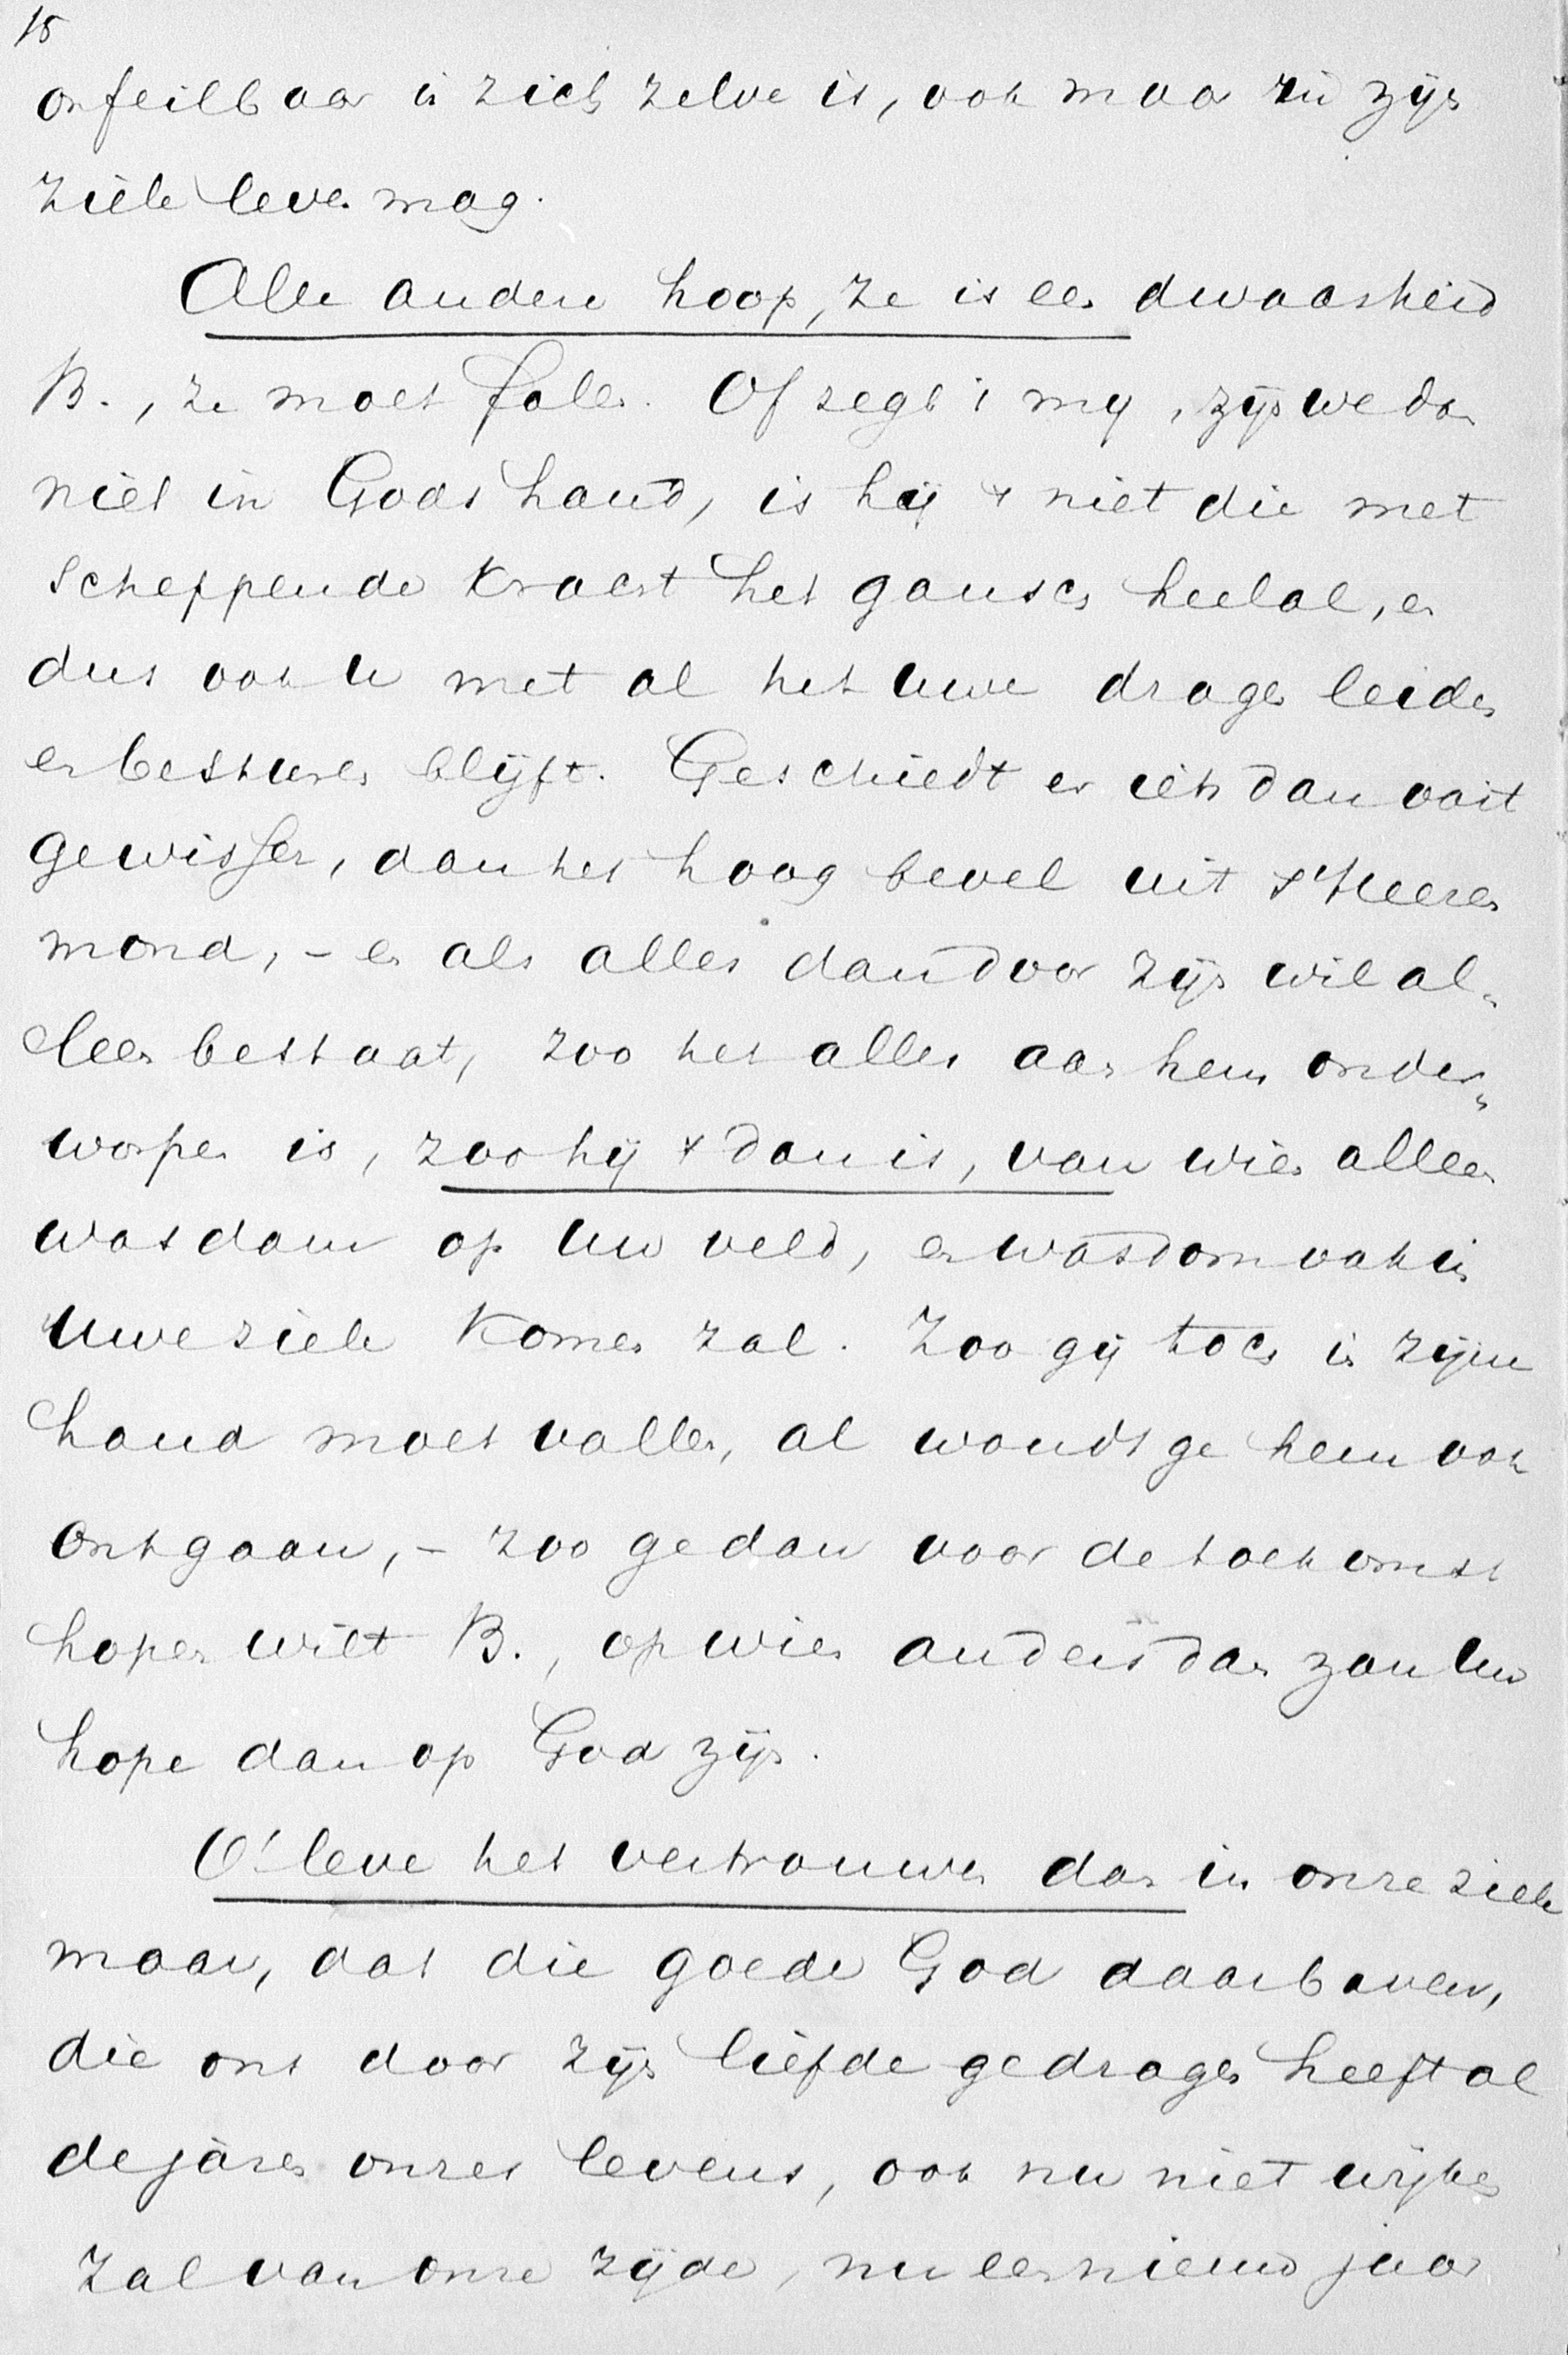 15
onfeilbaar in zich zelve is, ook maar in zijn
ziele leven mag.
Alle andere hoop, ze is een dwaasheid
B., ze moet falen. Of zegt 't mij, zijn we dan
niet in Gods hand, is hij 't niet die met
scheppende kracht het gansch heelal, en
dus ook U met al het Uwe dragen leiden
en besturen blijft. Geschiedt er iets dan ooit
gewisser, dan het hoog bevel uit s'Heeren
mond, - en als alles dan door zijn wil al„
leen bestaat, zoo het alles aan hem onder„
worpen is, zoo hij 't dan is, van wien alleen
wasdom op Uw veld, en wasdom ook in
Uwe ziele komen zal. Zoo gij toch in zijne
hand moet vallen, al woudt ge hem ook
ontgaan, - zoo ge dan voor de toekomst
hopen wilt B., op wien anders dan zou Uw
hope dan op God zijn.
O! leve het vertrouwen dan in onze ziele
maar, dat die goede God daarboven,
die ons door zijn liefde gedragen heeft al
de jaren onzes levens, ook nu niet wijken
zal van onze zijde, nu een nieuw jaar